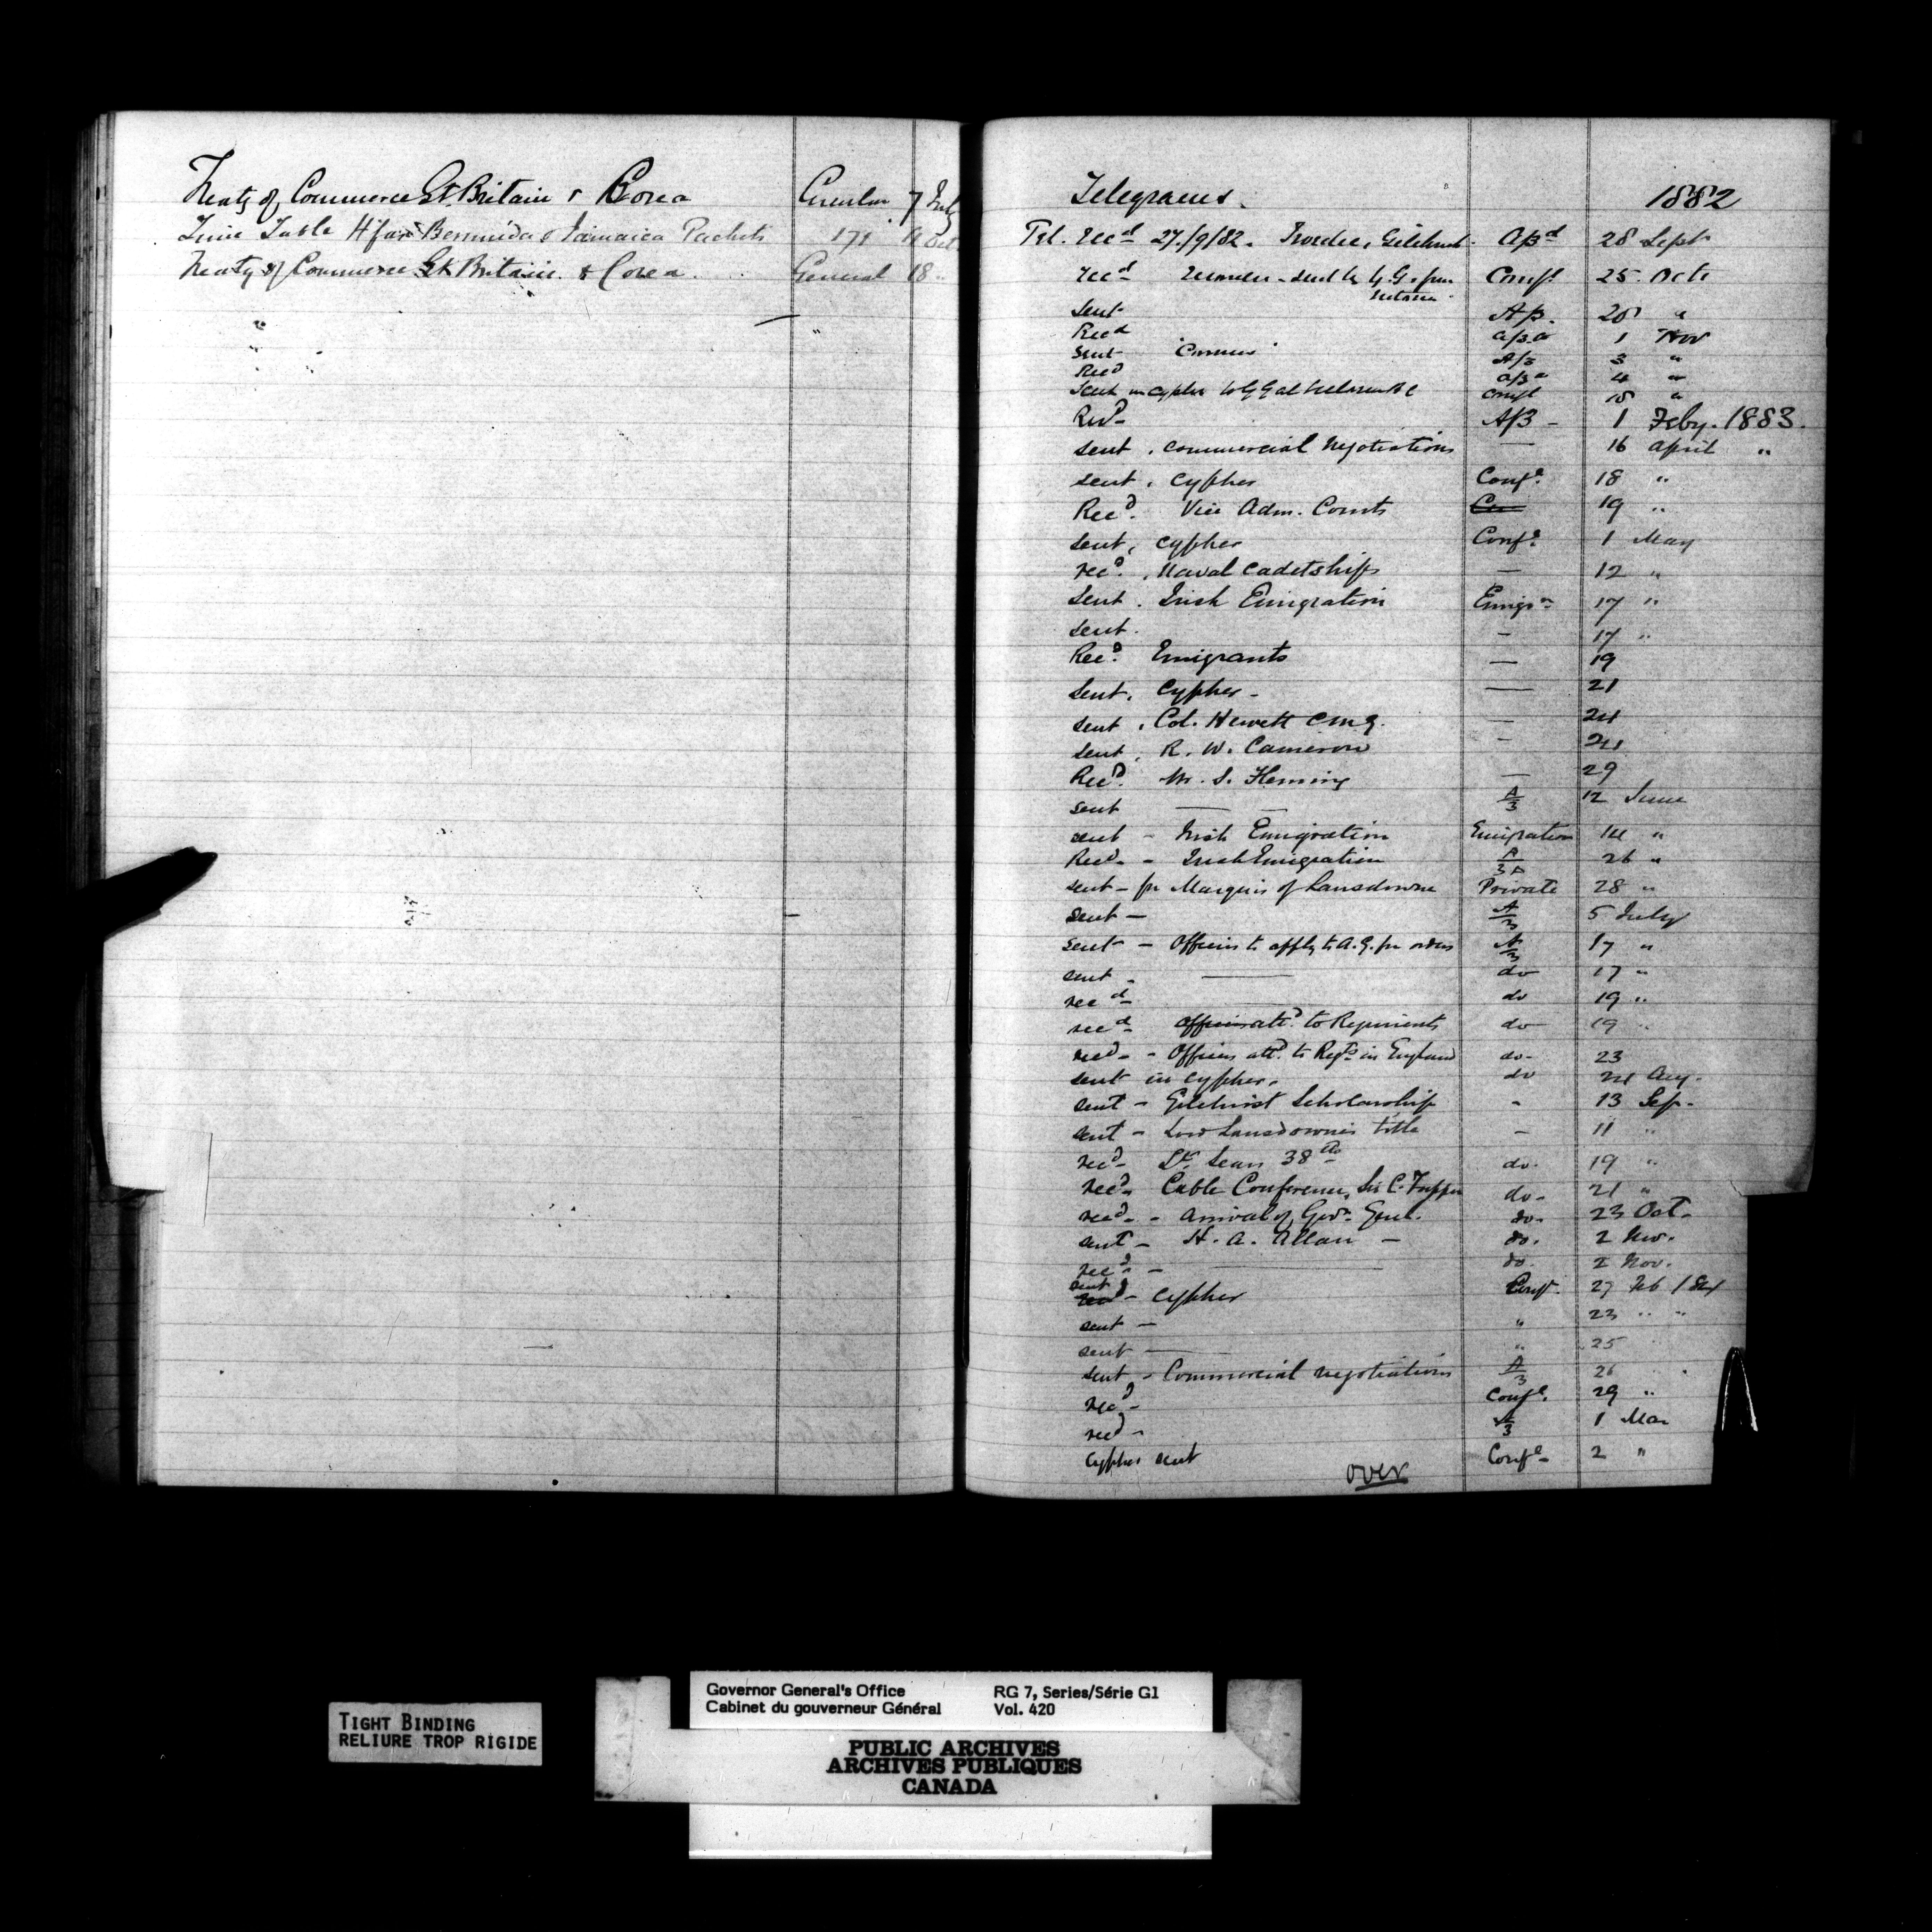 Treaty of Commerce Gt. Britain & Corea Circular 7 July
Time Table H'fax Bermuda & Jamaica Packets 171 Oct.
Treaty of Commerce Gt. Britain & Corea General 18 "
Telegrams. 1882
Tel. Recd 27/9/82. Gilchrist A/3d 28 Sept
recd sent by G.G. from Victoria Confl 25 Octr
Sent A/3. "
Recd a/3 a 1 Nov
Sent A/3 3 "
Recd a/3 a 4 "
Sent in cypher to G G at Confl 18 "
Recd A/3 - 1 Feby. 1883.
sent . commercial negotiations — 16 April "
sent . cypher Confl. 18 "
Recd. Vice Adm. Courts 19 "
sent, cypher Confl. 1 May
recd. , Naval cadetships — 12 "
Sent . Irish Emigration Emigrn 17 "
sent. - 17 "
Recd. Emigrants — 19
Sent. Cypher - — 21
sent . Col. Hewett CMG. — 24
sent , R. W. Cameron - 24
Recd. Mr. S. Fleming — 29
sent — — A/3 12 June
sent - Irish Emigration Emigration 14 "
Recd - Irish Emigration A/3A 26 "
sent - for Marquis of Lansdowne Private 28 "
sent — A/3 5 July
sent - Officers to apply to A.G. for orders A/3 17 "
sent - —— do 17 "
recd do 19 "
recd Officers attd. to Regiments do 19 "
recd - Officers attd. to Regts in England do- 23
sent in cypher. do 24 Aug.
sent - Gilchrist Scholarship - 13 Sep.
sent - Lord Lansdowne's title - 11 "
recd - Lt. Sears 38th do. 19 "
recd - Cable Conference, Sir C. Tupper do- 21 "
recd - Arrival of Govr. Genl. do. 23 Oct.
sent - H. A. Allan - do. 2 Nov.
recd - —— do. 2 Nov.
sent recd - Cypher Confl. 27 Feb 1884
sent — " 23 " "
sent — " 25 "
sent - Commercial negotiations A/3 26 "
recd - Confl. 29 "
recd - A/3 1 Mar
Cypher sent Confl - 2 "
over
TIGHT BINDING
RELIURE TROP RIGIDE
Governor General's Office RG 7, Series/Série G1
Cabinet du gouverneur Général Vol. 420
PUBLIC ARCHIVES
ARCHIVES PUBLIQUES
CANADA